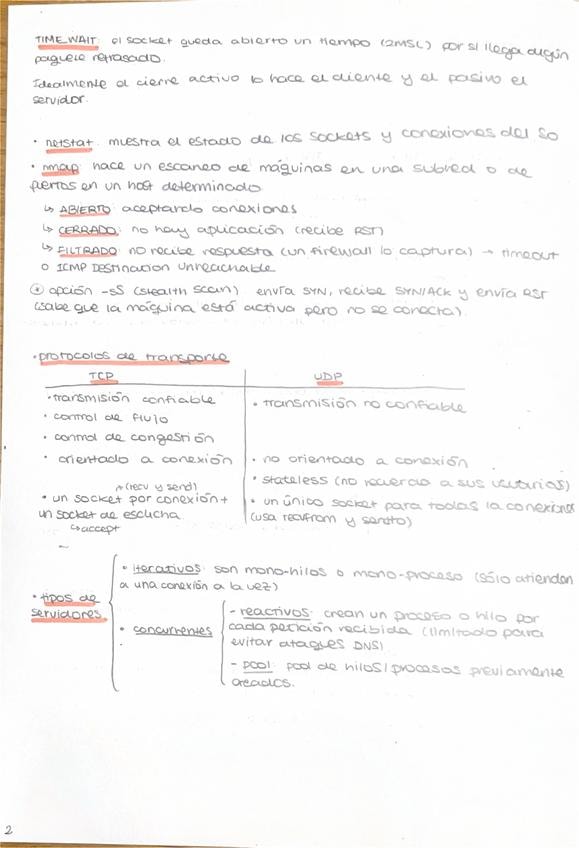 TIME WAIT: el socket queda abierto un tiempo (2MSL) por si llega algún
paquete retrasado.
Idealmente el cierre activo lo hace el cliente y el pasivo el
servidor.
• netstat: muestra el estado de los sockets y conexiones del SO
• nmap: hace un escaneo de máquinas en una subred o de
puertos en un host determinado
↳ ABIERTO: aceptando conexiones
↳ CERRADO: no hay aplicación (recibe RST)
↳ FILTRADO: no recibe respuesta (un firewall lo captura) → timeout
o ICMP Destination Unreachable
* opción -sS (stealth scan) envía SYN, recibe SYN/ACK y envía RST
(sabe que la máquina está activa pero no se conecta).
• protocolos de transporte
TCP UDP
• transmisión confiable • transmisión no confiable
• control de flujo
• control de congestión
• orientado a conexión • no orientado a conexión
(recv y send) • stateless (no recuerda a sus usuarios)
• un socket por conexión + • un único socket para todas la conexiones
un socket de escucha (usa recvfrom y sendto)
↳ accept
• tipos de
servidores
• iterativos: son mono-hilos o mono-proceso (sólo atienden
a una conexión a la vez)
• concurrentes
- reactivos: crean un proceso o hilo por
cada petición recibida (limitado para
evitar ataques DNS)
- pool: pool de hilos/procesos previamente
creados.
2